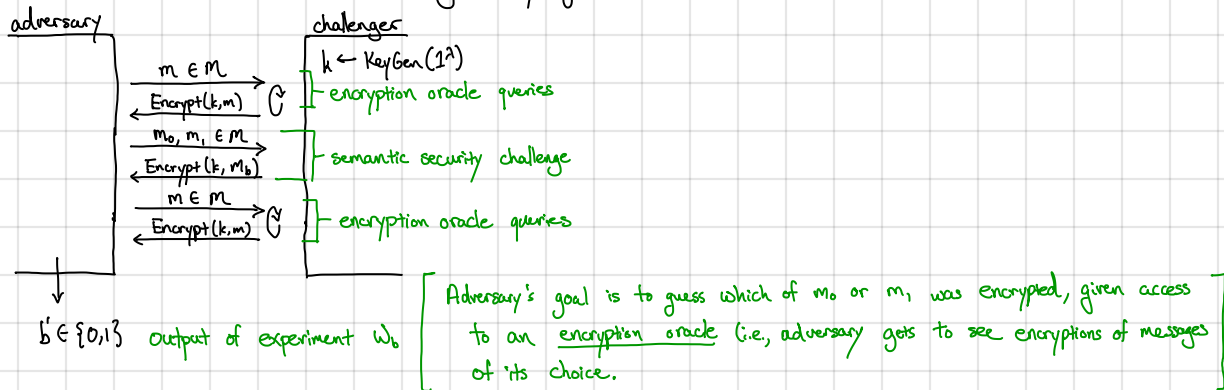 adversary
challenger
k ← KeyGen(1^λ)
m ∈ M
Encrypt(k,m)
encryption oracle queries
m₀, m₁ ∈ M
Encrypt(k, m_b)
semantic security challenge
m ∈ M
Encrypt(k,m)
encryption oracle queries
b' ∈ {0,1} output of experiment W_b
Adversary's goal is to guess which of m₀ or m₁ was encrypted, given access
to an encryption oracle (i.e., adversary gets to see encryptions of messages
of its choice.